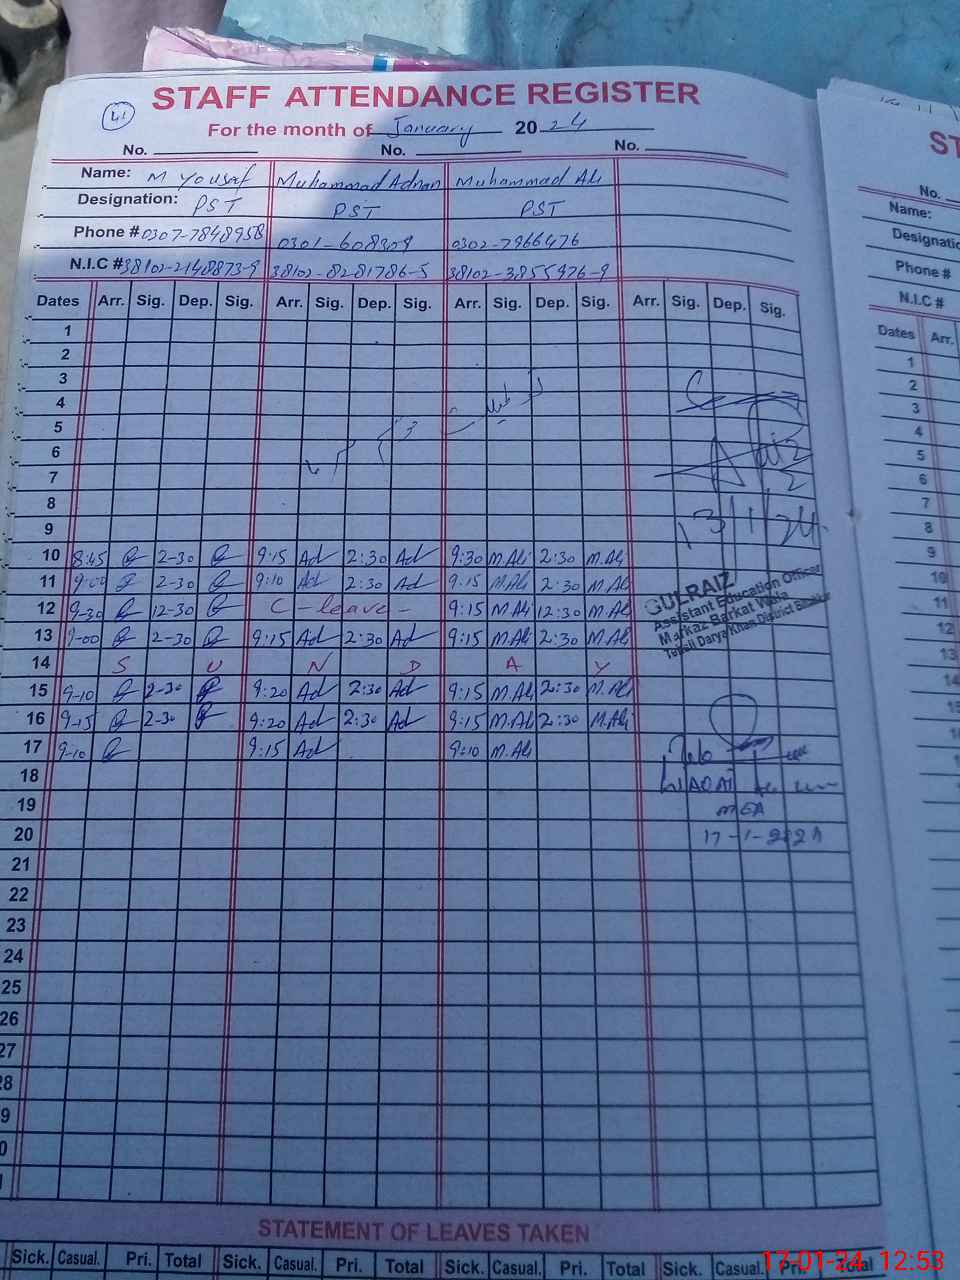 41
STAFF ATTENDANCE REGISTER
For the month of January 2024
No. No. No.
Name: M Yousaf Muhammad Adnan Muhammad Ali
Designation: PST PST PST
Phone # 0307-7848958 0301-608308 0302-7966476
N.I.C # 38102-2148873-9 38102-8281786-5 38102-3855976-9
Dates Arr. Sig. Dep. Sig. Arr. Sig. Dep. Sig. Arr. Sig. Dep. Sig. Arr. Sig. Dep. Sig.
1
2
3
4
5
6
7
8
9
13/1/24
10 8:45 2-30 9:15 Ad 2:30 Ad 9:30 M.Ali 2:30 M.Ali
11 9:00 2-30 9:10 Ad 2:30 Ad 9:15 M.Ali 2:30 M.Ali
12 9-30 12-30 C-leave- 9:15 M.Ali 12:30 M.Ali
13 9-00 2-30 9:15 Ad 2:30 Ad 9:15 M.Ali 2:30 M.Ali
GULRAIZ
Assistant Education Officer
Markaz Barkat Wala
Tehsil Darya Khan District Bhakkar
14 S U N D A Y
15 9-10 2-30 9:20 Ad 2:30 Ad 9:15 M.Ali 2:30 M.Ali
16 9-15 2-30 9:20 Ad 2:30 Ad 9:15 M.Ali 2:30 M.Ali
17 9-10 9:15 Ad 9:10 M.Ali
18
LIAQAT
19
MEA
20
17-1-2024
21
22
23
24
25
26
27
28
9
0
STATEMENT OF LEAVES TAKEN
Sick. Casual. Pri. Total Sick. Casual. Pri. Total Sick. Casual. Pri. Total Sick. Casual. Pri. Total
17-01-24 12:53
ST
No.
Name:
Designatio
Phone #
N.I.C #
Dates Arr.
1
2
3
4
5
6
7
8
9
10
11
12
13